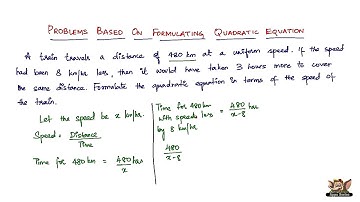 PROBLEMS BASED ON FORMULATING QUADRATIC EQUATION
A train travels a distance of 480 km at a uniform speed. If the speed
had been 8 km/hr less, then it would have taken 3 hours more to cover
the same distance. Formulate the quadratic equation in terms of the speed of
the train.
Let the speed be x km/hr.
Speed = Distance / Time
Time for 480 km = 480/x hrs
Time for 480 km
with speeds less = 480/x-8 hrs
by 8 km/hr
480/x-8